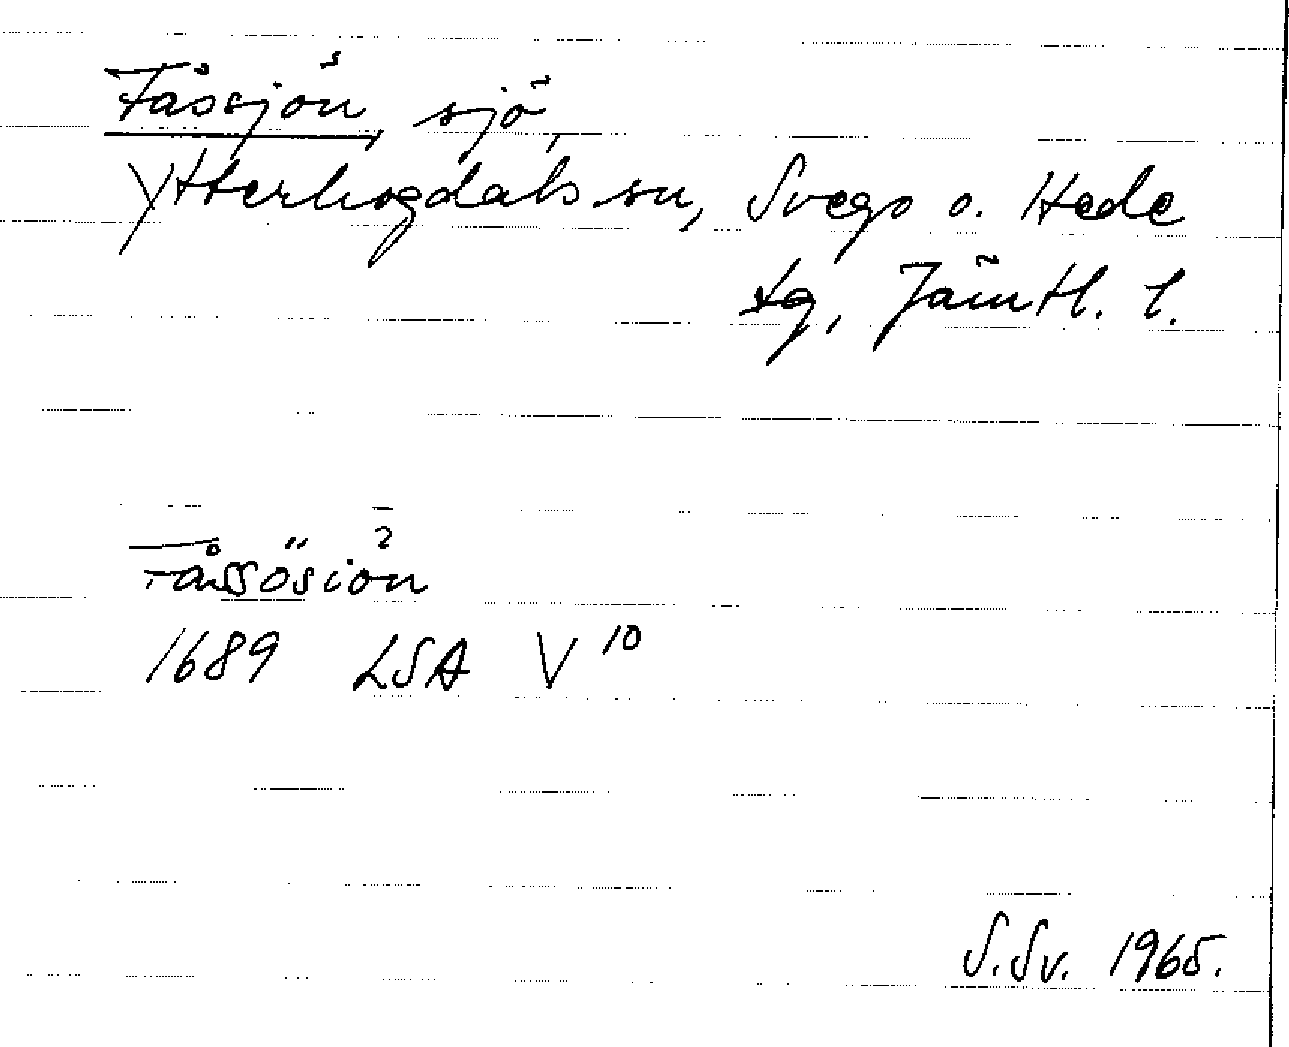 Fåssjön, sjö,
Ytterhogdals sn, Svegs o. Hede
tg, Jämtl. l.
Fåssösiön
1689 LSA V 10
S.Sv. 1965.